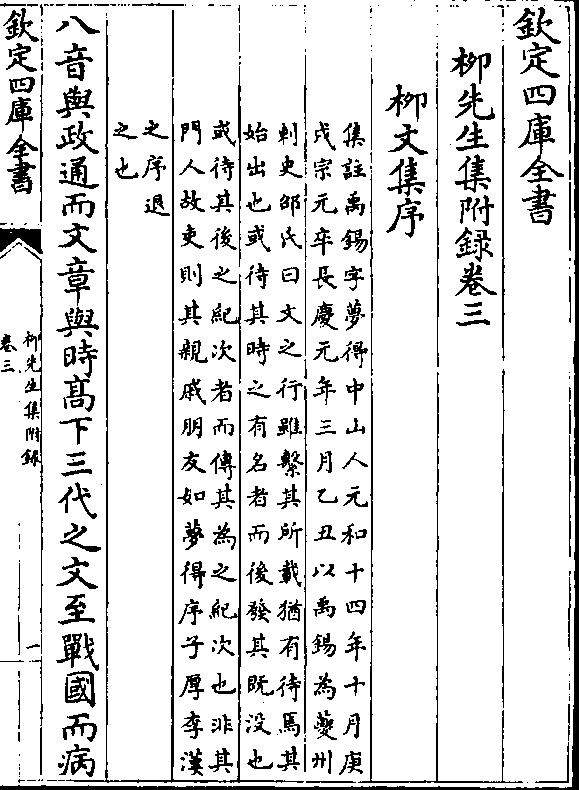 欽定四庫全書
柳先生集附録卷三
柳文集序
集註禹錫字夢得中山人元和十四年十月庚
戌宗元卒長慶元年三月乙丑以禹錫為夔州
刺史邵氏曰文之行雖繫其所載猶有待焉其
始出也或待其時之有名者而後發其既没也
或待其後之紀次者而傳其為之紀次也非其
門人故吏則其親戚朋友如夢得序子厚李漢
之序退
之也
八音與政通而文章與時髙下三代之文至戰國而病
欽定四庫全書
柳先生集附録
卷三
一